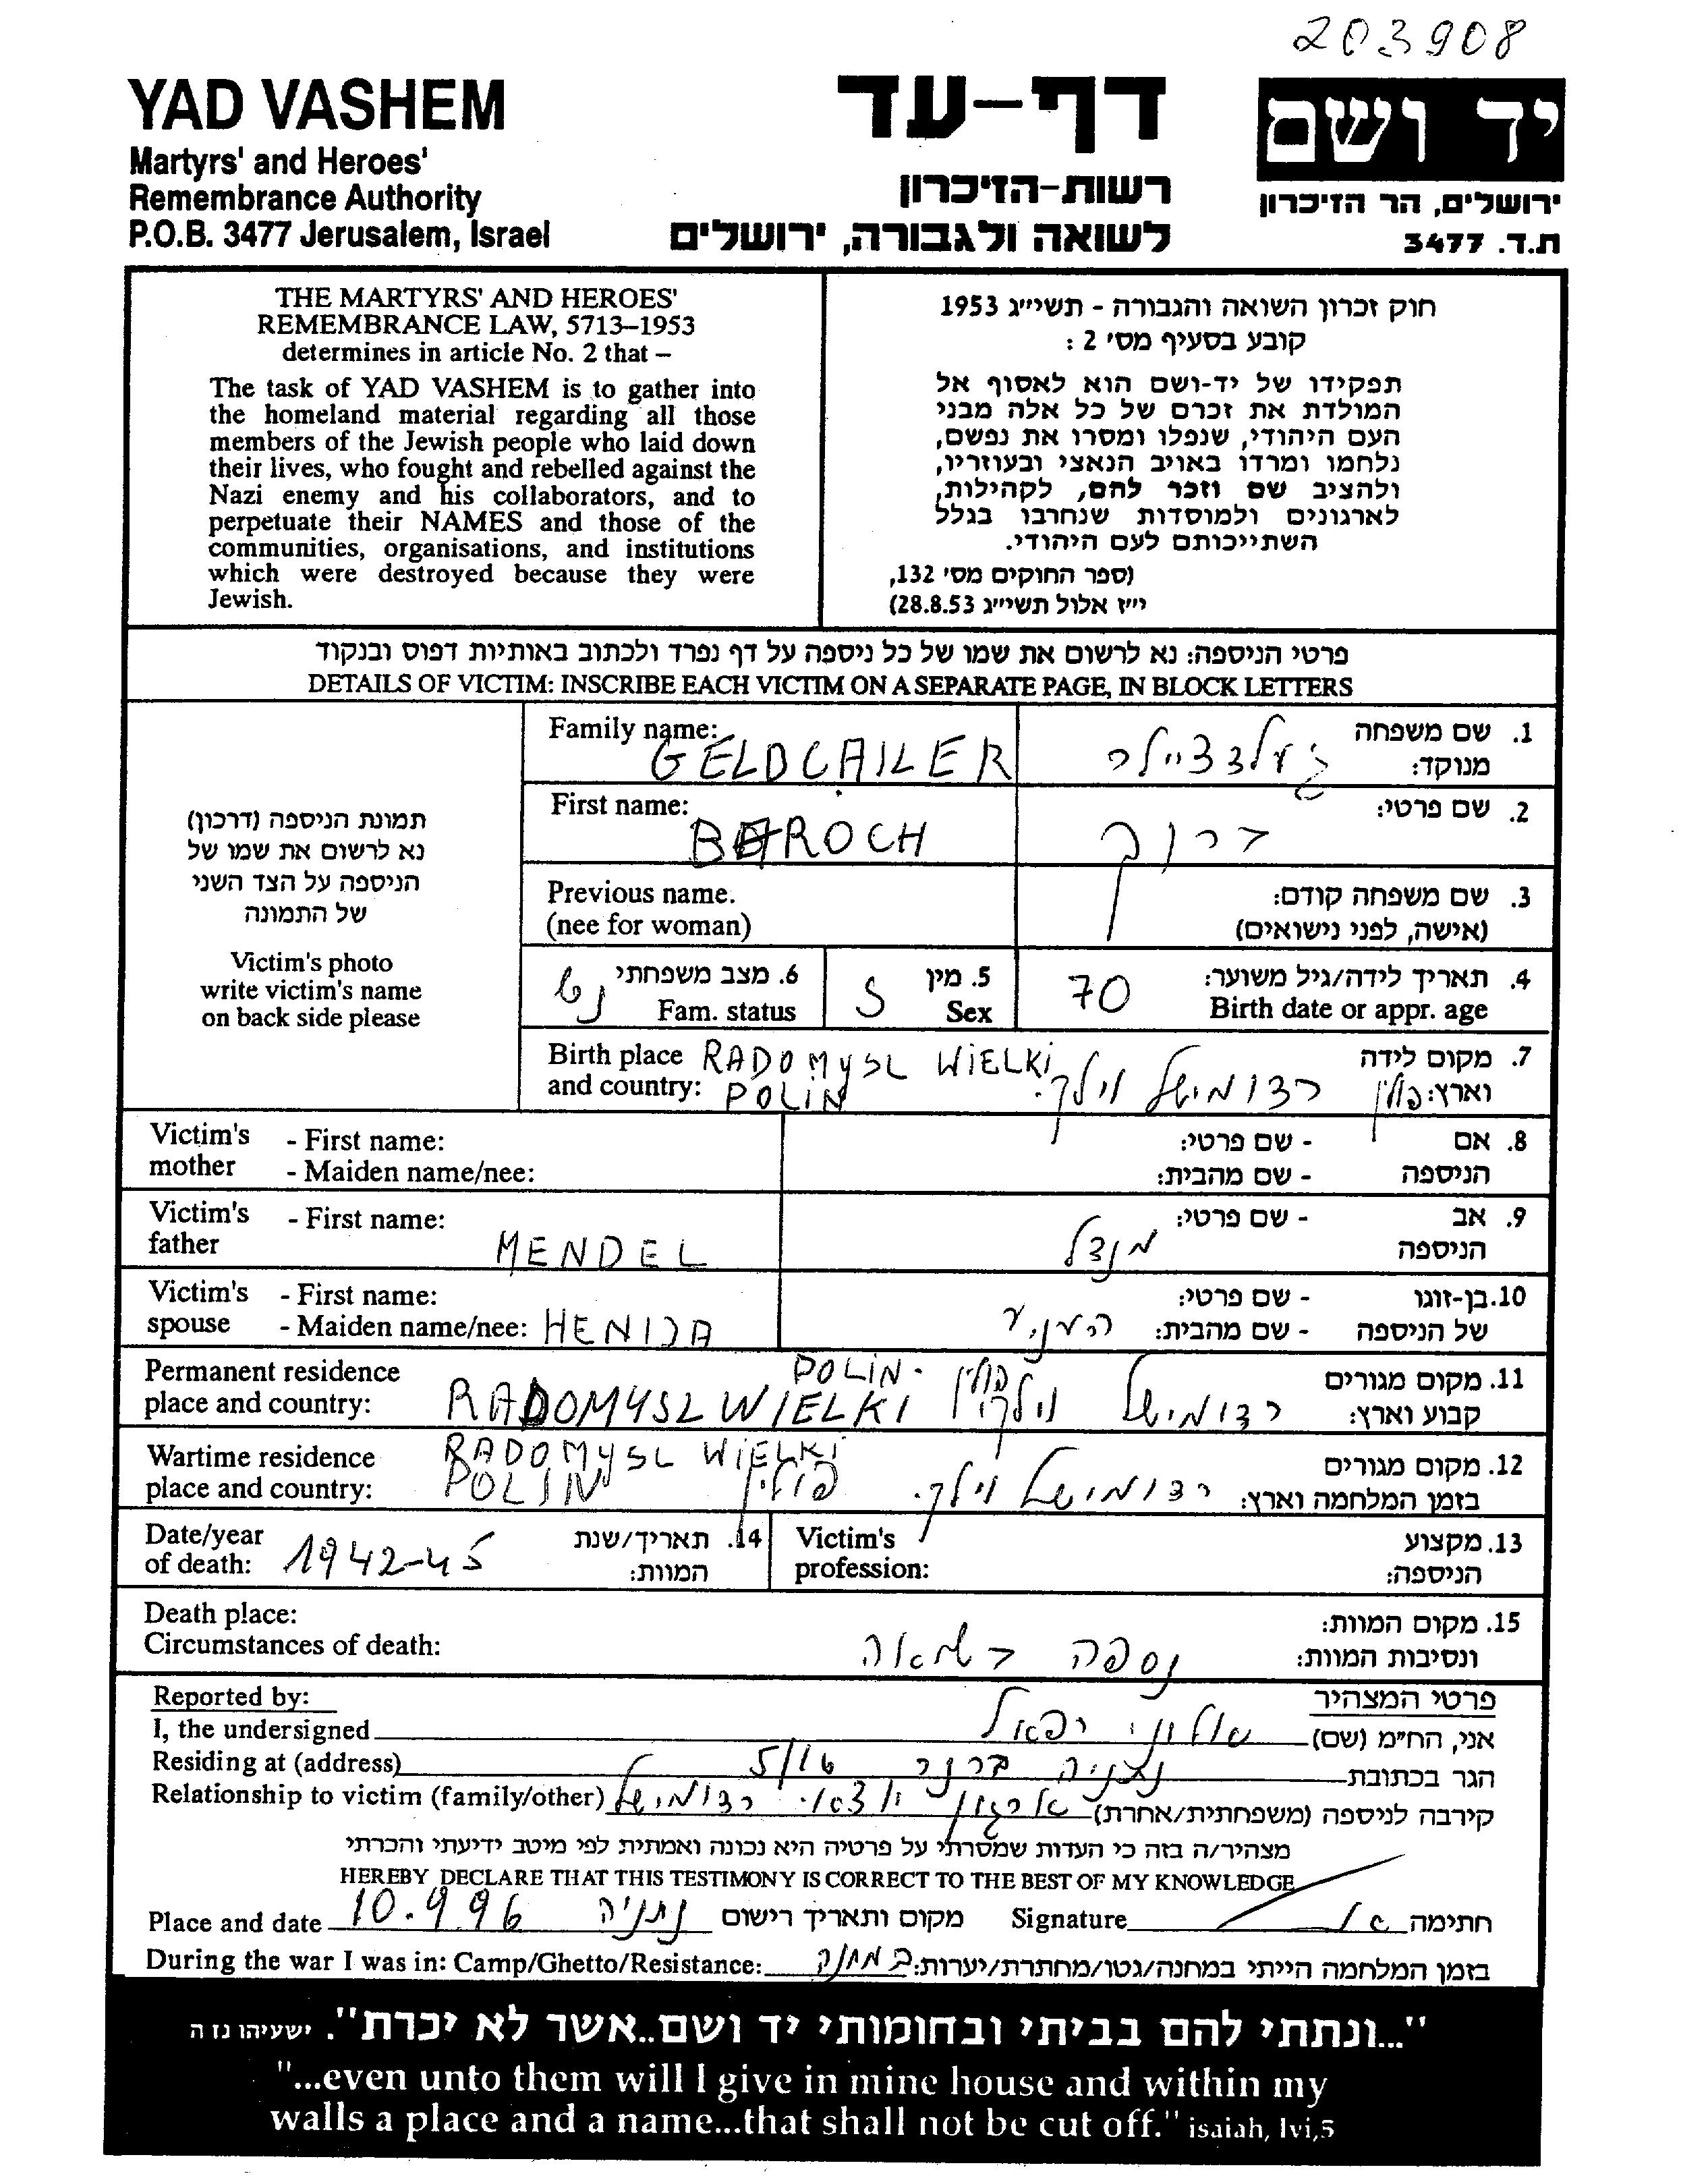 203908
YAD VASHEM
Martyrs' and Heroes'
Remembrance Authority
P.O.B. 3477 Jerusalem, Israel
דף-עד
רשות-הזיכרון
לשואה ולגבורה, ירושלים
יד ושם
ירושלים, הר הזיכרון
ת.ד. 3477
THE MARTYRS' AND HEROES'
REMEMBRANCE LAW, 5713–1953
determines in article No. 2 that –
The task of YAD VASHEM is to gather into
the homeland material regarding all those
members of the Jewish people who laid down
their lives, who fought and rebelled against the
Nazi enemy and his collaborators, and to
perpetuate their NAMES and those of the
communities, organisations, and institutions
which were destroyed because they were
Jewish.
חוק זכרון השואה והגבורה - תשי״ג 1953
קובע בסעיף מס׳ 2 :
תפקידו של יד-ושם הוא לאסוף אל
המולדת את זכרם של כל אלה מבני
העם היהודי, שנפלו ומסרו את נפשם,
נלחמו ומרדו באויב הנאצי ובעוזריו,
ולהציב שם וזכר להם, לקהילות,
לארגונים ולמוסדות שנחרבו בגלל
השתייכותם לעם היהודי.
(ספר החוקים מס׳ 132,
י״ז אלול תשי״ג 28.8.53)
פרטי הניספה: נא לרשום את שמו של כל ניספה על דף נפרד ולכתוב באותיות דפוס ובנקוד
DETAILS OF VICTIM: INSCRIBE EACH VICTIM ON A SEPARATE PAGE, IN BLOCK LETTERS
תמונת הניספה (דרכון)
נא לרשום את שמו של
הניספה על הצד השני
של התמונה
Victim's photo
write victim's name
on back side please
Family name: GELDCAILER
1. שם משפחה
מנוקד: געלצציילר
First name: BOROCH
2. שם פרטי: ברוך
Previous name.
(nee for woman)
3. שם משפחה קודם:
(אישה, לפני נישואים)
6. מצב משפחתי נש
Fam. status
5. מין
Sex
4. תאריך לידה/גיל משוער: 70
Birth date or appr. age
Birth place RADOMYSL WIELKI
and country: POLIN
7. מקום לידה
וארץ: פולין רדומישל וילקי
Victim's mother - First name:
- Maiden name/nee:
8. אם הניספה - שם פרטי:
- שם מהבית:
Victim's father - First name: MENDEL
9. אב הניספה - שם פרטי: מנדל
Victim's spouse - First name:
- Maiden name/nee: HENIJA
10. בן-זוגו של הניספה - שם פרטי:
- שם מהבית: העניע
Permanent residence
place and country: RADOMYSL WIELKI POLIN
11. מקום מגורים
קבוע וארץ: רדומישל וילקי פולין
Wartime residence
place and country: RADOMYSL WIELKI POLIN
12. מקום מגורים
בזמן המלחמה וארץ: רדומישל וילקי פולין
Date/year
of death: 1942-45
14. תאריך/שנת
המוות:
Victim's
profession:
13. מקצוע
הניספה:
Death place:
Circumstances of death:
15. מקום המוות:
ונסיבות המוות: נספה בשואה
Reported by:
פרטי המצהיר
I, the undersigned
אני, הח״מ (שם) שלוני רפאל
Residing at (address)
הגר בכתובת נתניה ברנר 5/16
Relationship to victim (family/other)
קירבה לניספה (משפחתית/אחרת) ארגון יוצאי רדומישל
מצהיר/ה בזה כי העדות שמסרתי על פרטיה היא נכונה ואמתית לפי מיטב ידיעתי והכרתי
HEREBY DECLARE THAT THIS TESTIMONY IS CORRECT TO THE BEST OF MY KNOWLEDGE
Place and date 10.9.96 נתניה מקום ותאריך רישום Signature חתימה
During the war I was in: Camp/Ghetto/Resistance: בזמן המלחמה הייתי במחנה/גטו/מחתרת/יערות: במחנה
"...ונתתי להם בביתי ובחומותי יד ושם..אשר לא יכרת". ישעיהו נז ה
"...even unto them will I give in mine house and within my
walls a place and a name...that shall not be cut off." isaiah, lvi,5